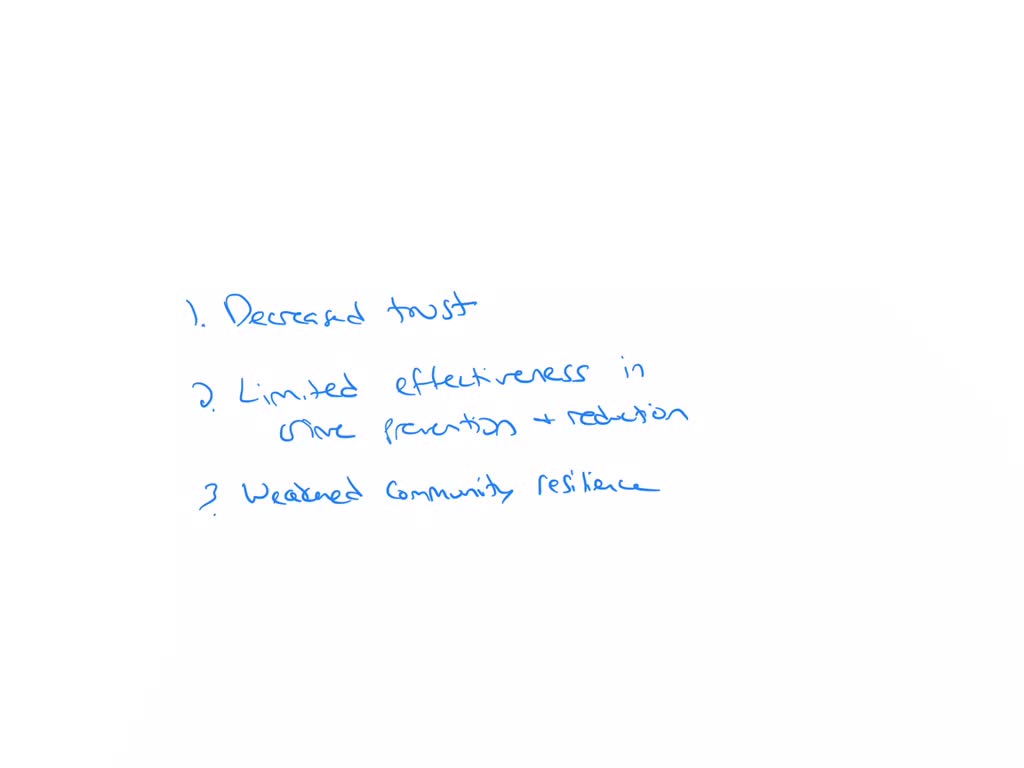 1. Decreased trust
2. Limited effectiveness in
crime prevention + reduction
3. Weakened community resilience